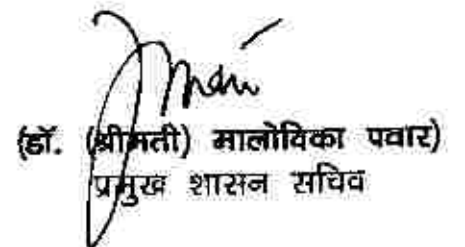 (डॉ. (श्रीमती) मालोविका पवार)
प्रमुख शासन सचिव